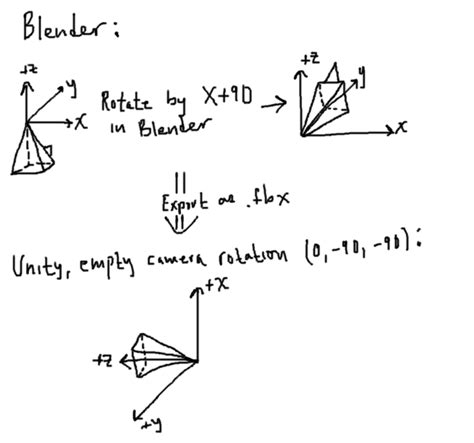 Blender:
+Z
y
x
Rotate by X+90
in Blender
+Z
y
x
Export as .fbx
Unity, empty camera rotation (0, -90, -90):
+X
+Z
+y